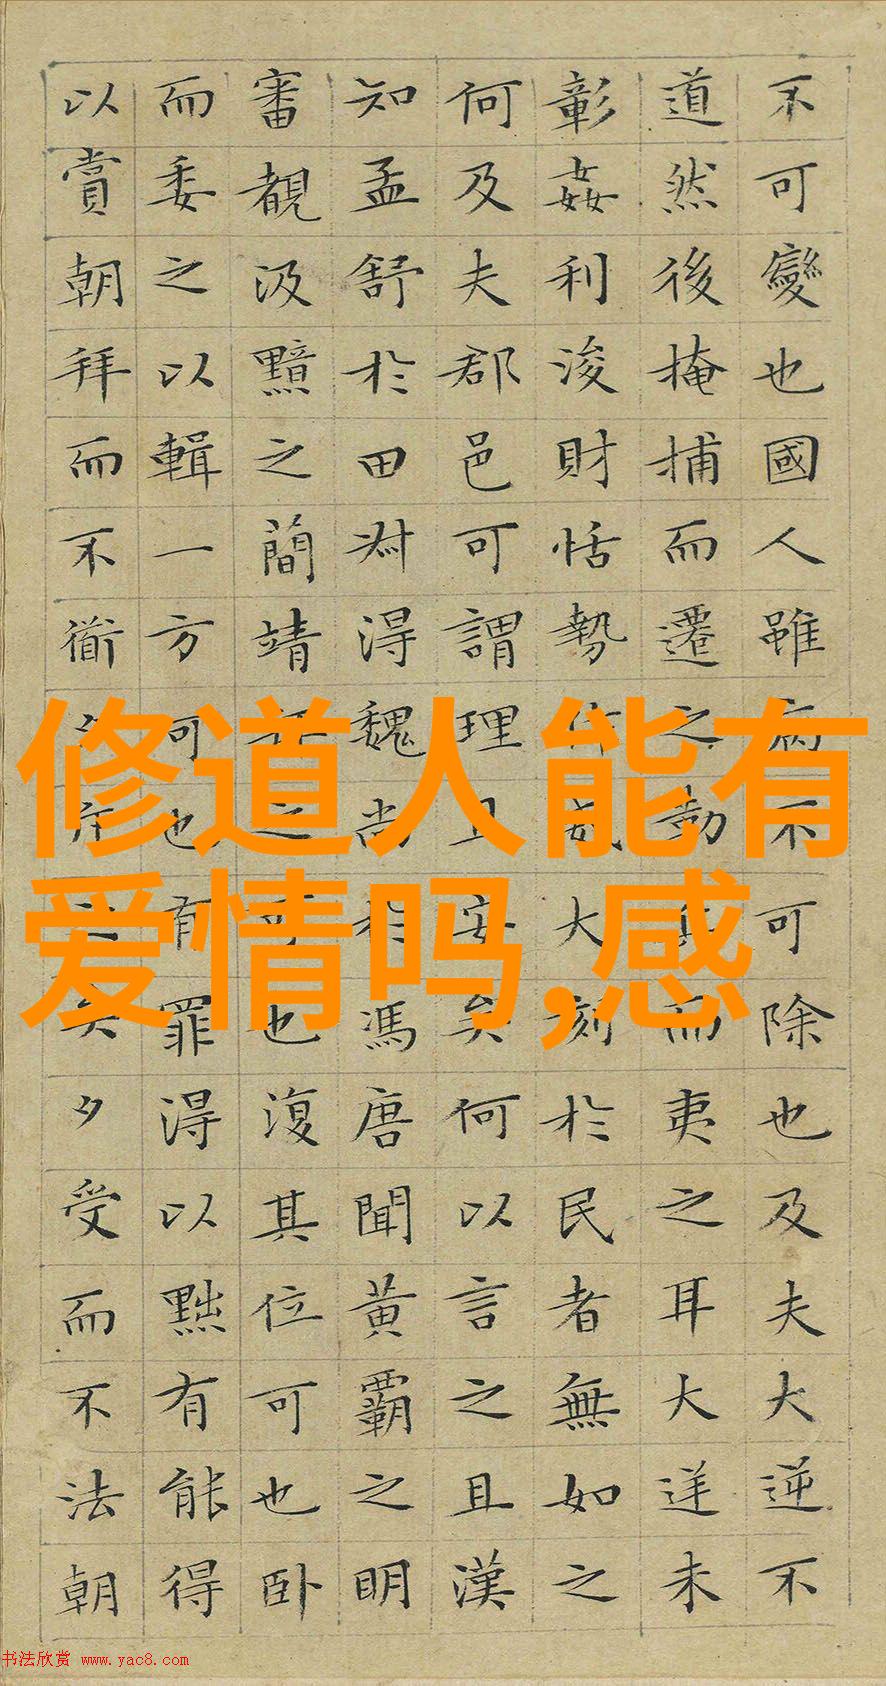 不可變也國人雖病不可除也及夫大逆不
道然後掩捕而遷之勒兵而夷之耳大逆未
彰姦利浚財恬勢作威大刻於民者無如之
何及夫郡邑可謂理且安矣何以言之且漢
知孟舒於田叔得魏尚於馮唐聞黃霸之明
審覩汲黯之簡靖拜之可也復其位可也卧
而委之以輯一方可也有罪得以黜有能得
以賞朝拜而不衜夕斥之矣夕受而不法朝
修道人能有
爱情吗,感
书法欣赏 www.yac8.com